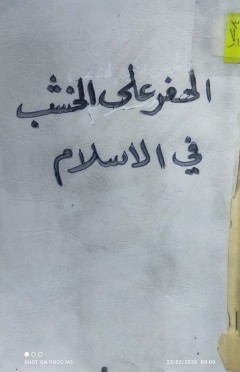 الحفر على الخشب
في الاسلام
SHOT ON POCO M3